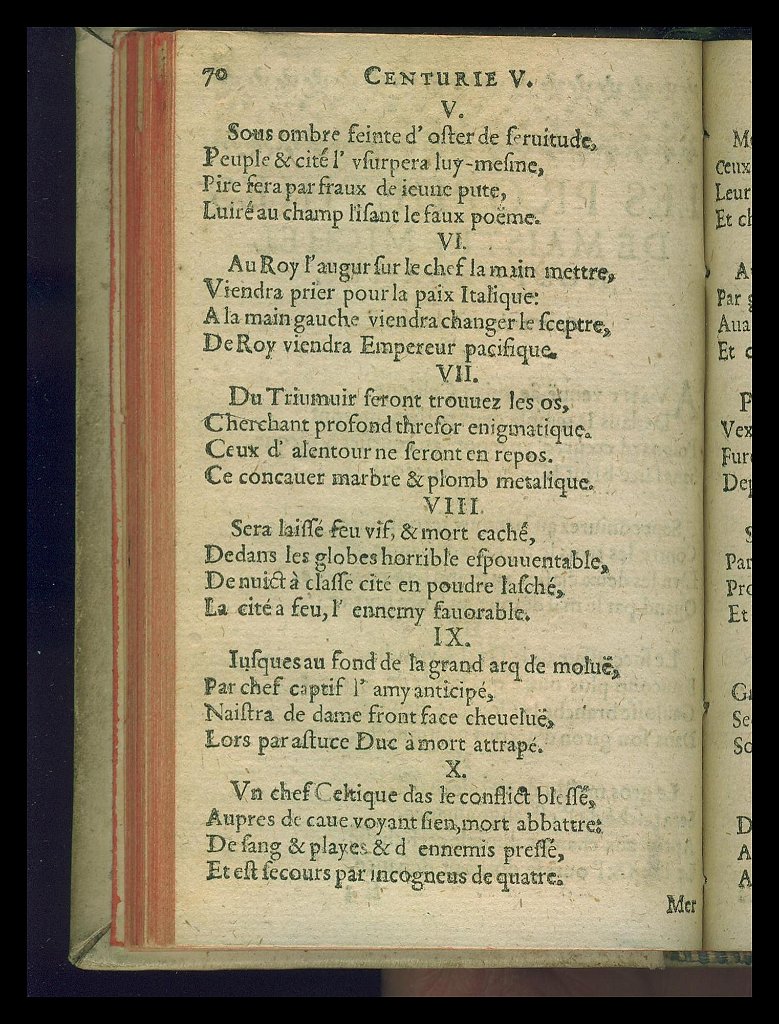 70 CENTURIE V.
V.
Sous ombre feinte d' oſter de ſeruitude,
Peuple & cité l' vſurpera luy-meſme,
Pire ſera par fraux de ieune pute,
Luiré au champ liſant le faux poëme.
VI.
Au Roy l'augur ſur le chef la main mettre,
Viendra prier pour la paix Italique:
A la main gauche viendra changer le ſceptre,
De Roy viendra Empereur pacifique.
VII.
Du Triumuir ſeront trouuez les os,
Cherchant profond threſor enigmatique.
Ceux d' alentour ne ſeront en repos.
Ce concauer marbre & plomb metalique.
VIII.
Sera laiſſé feu vif, & mort caché,
Dedans les globes horrible eſpouuentable,
De nuict à claſſe cité en poudre laſché,
La cité a feu, l' ennemy fauorable.
IX.
Iuſques au fond de la grand arq de moluë,
Par chef captif l' amy anticipé,
Naiſtra de dame front face cheueluë,
Lors par aſtuce Duc à mort attrapé.
X.
Vn chef Celtique das le conflict bleſſé,
Aupres de caue voyant ſien, mort abbattre:
De ſang & playes & d ennemis preſſé,
Et eſt ſecours par incogneus de quatre.
Mer
Ceux
Leur
Et ch
Par
Aua
Et
Vex
Fur
Dep
Par
Pro
Et